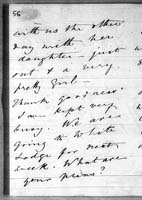 56
with us the other
day with her
daughter - just
out & a very
pretty Girl -
Thank goodness
I am kept very
busy. We are
going to White
Lodge for next
week. What are
your plans?